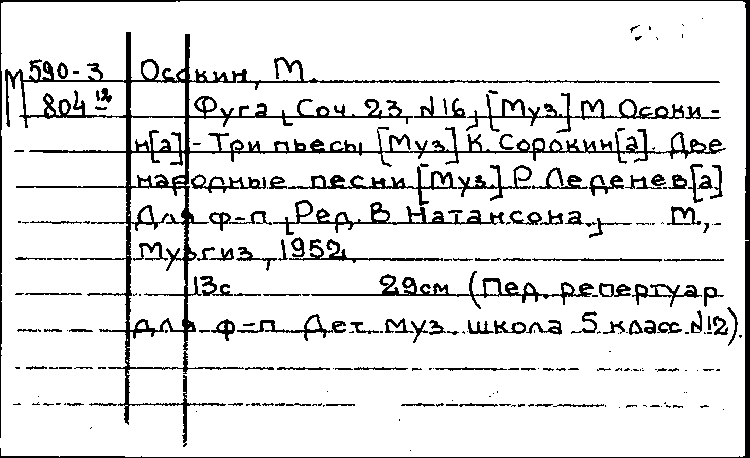 М 590-3 Осокин, М.
804 12 Фуга, Соч. 23, №16, [Муз.] М. Осоки-
н[а] - Три пьесы [Муз.] К. Сорокин[а]. Две
народные песни [Муз.] Р. Леденев[а]
Для ф-п [Ред. В. Натансона.] М.,
Музгиз, 1952.
13с 29см (Пед. репертуар
для ф-п Дет. муз. школа 5 класс №12).